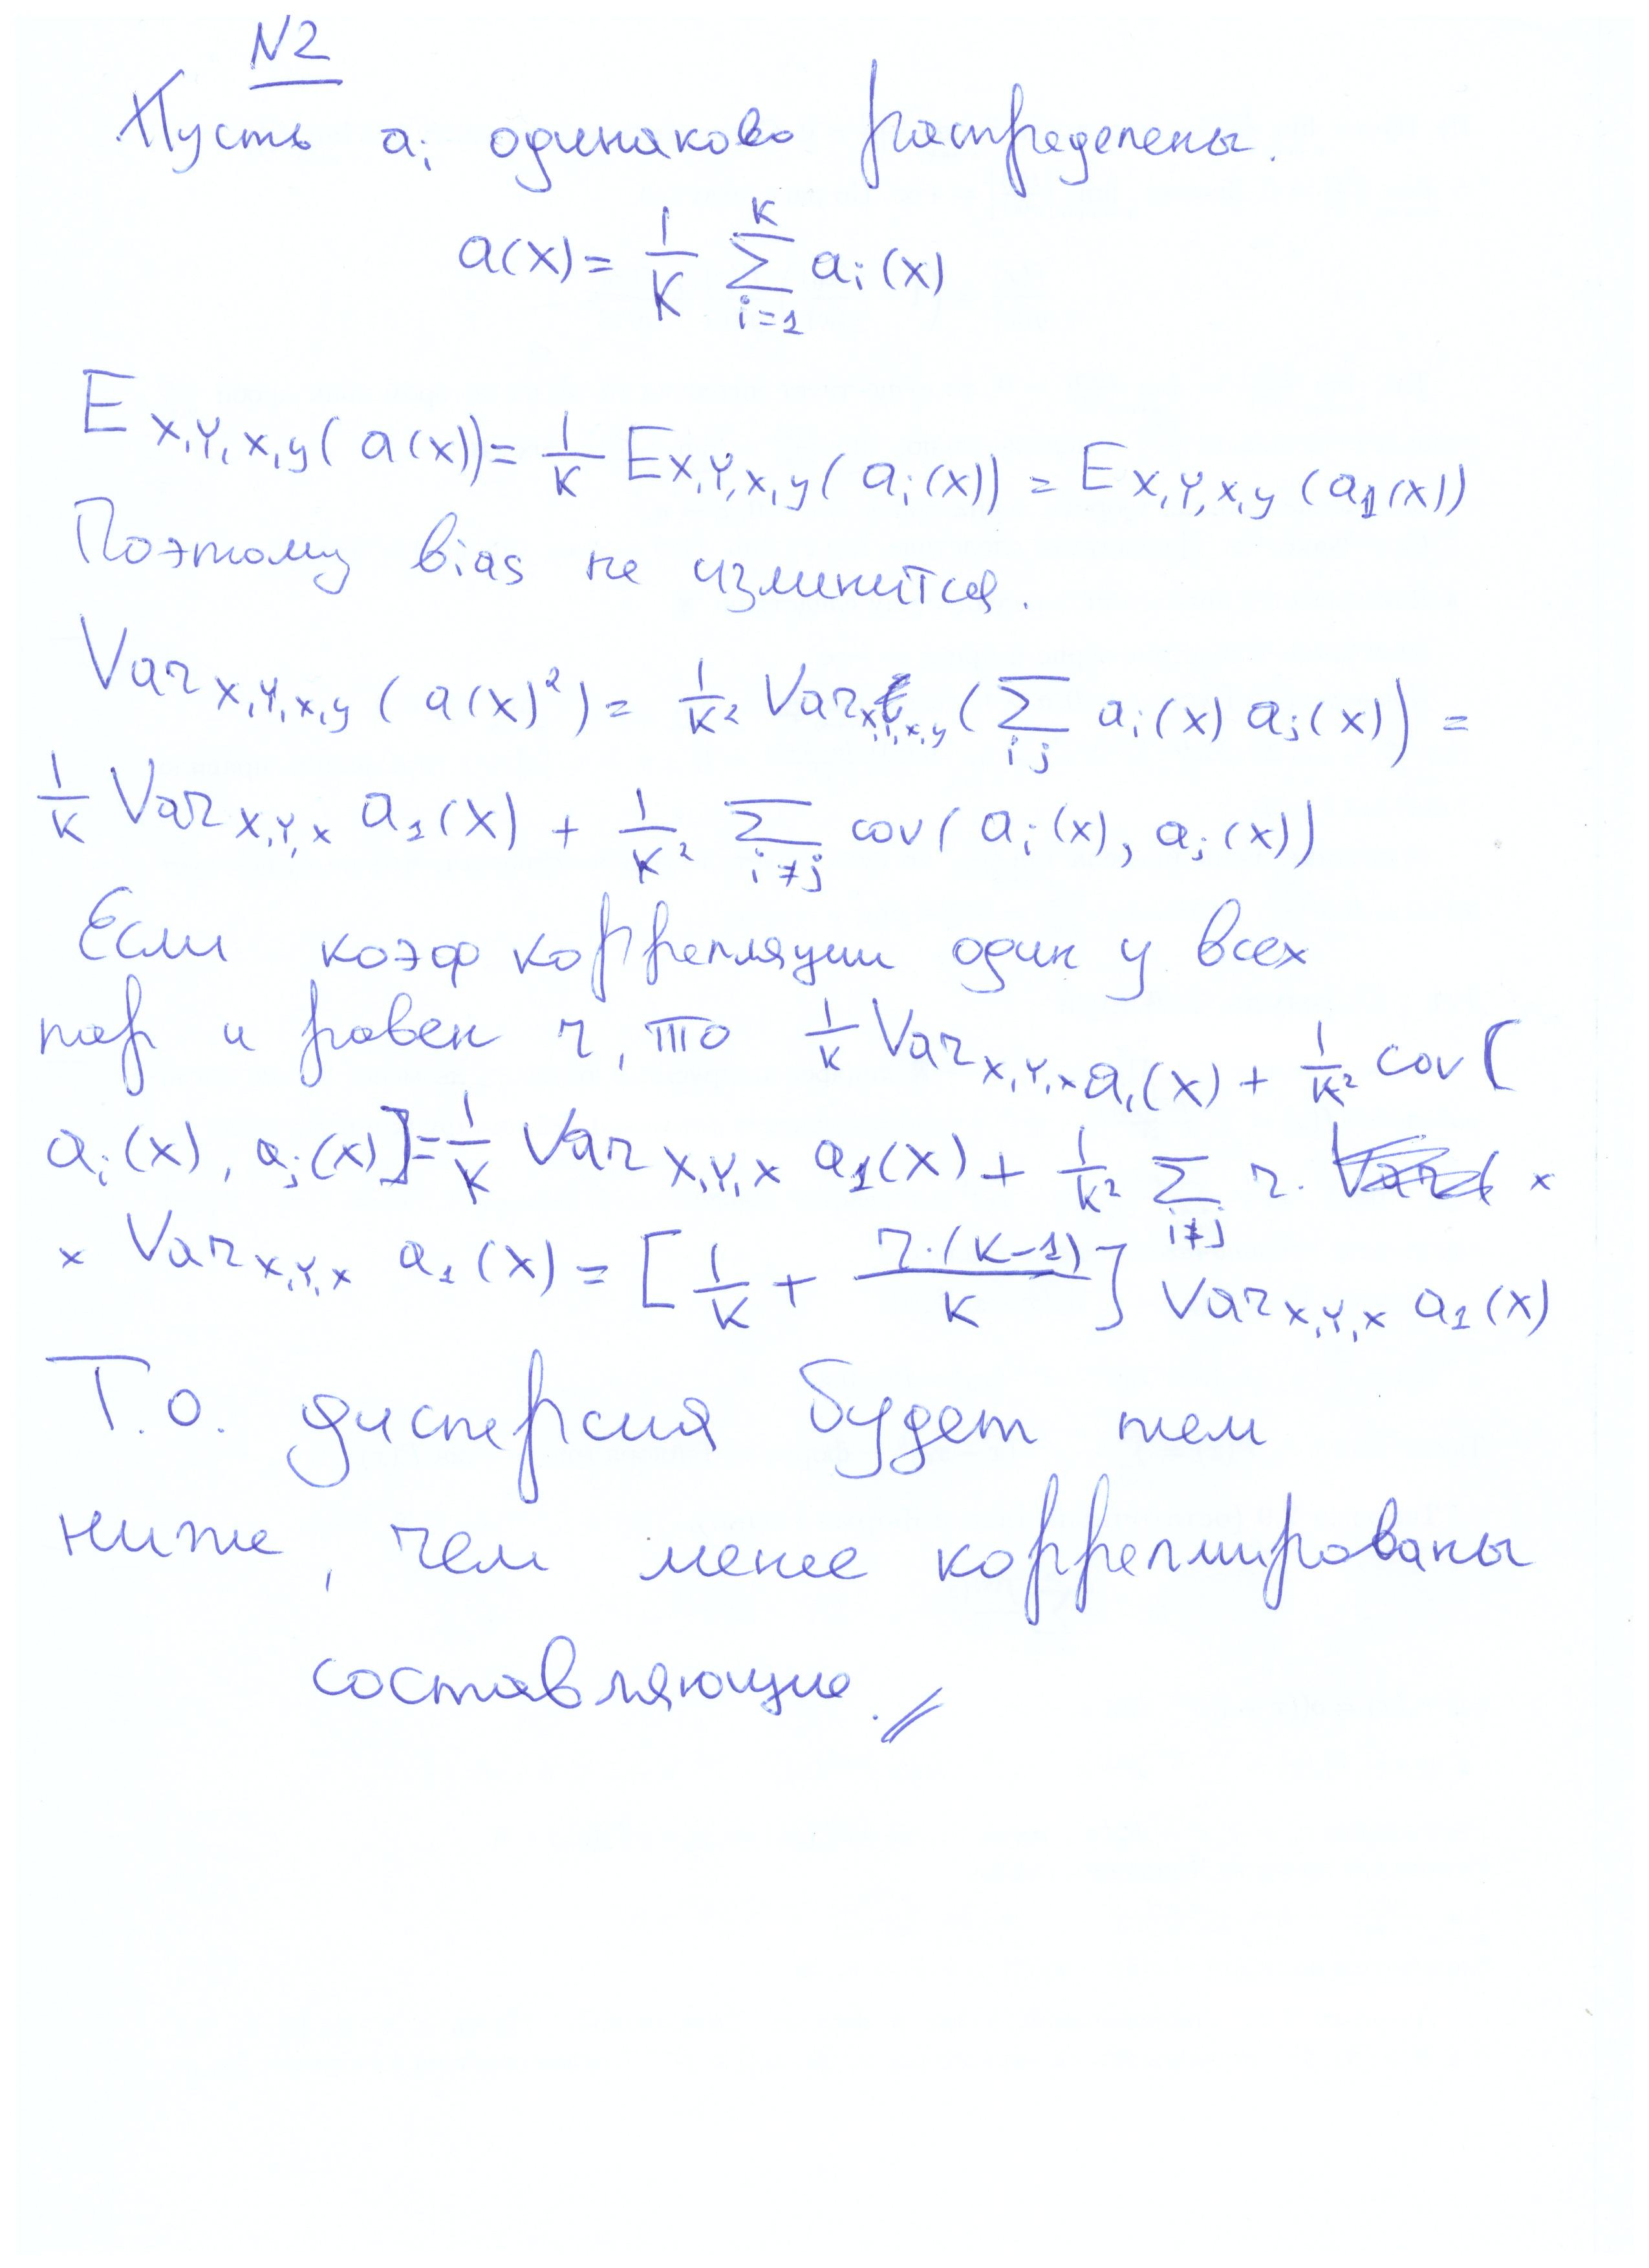 N2
Пусть a_i одинаково распределены.
a(x) = 1/K ∑_{i=1}^{K} a_i(x)
E_{X,Y,x,y}(a(x)) = 1/K E_{X,Y,x,y}(a_i(x)) = E_{X,Y,x,y}(a_1(x))
Поэтому bias не изменится.
Var_{X,Y,x,y}(a(x)²) = 1/K² Var_{X,Y,x,y}(∑_{ij} a_i(x) a_j(x)) =
1/K Var_{X,Y,x} a_1(x) + 1/K² ∑_{i≠j} cov(a_i(x), a_j(x))
Если коэф корреляции один у всех
пар и равен r, то 1/K Var_{X,Y,x} a_1(x) + 1/K² cov[
a_i(x), a_j(x)] = 1/K Var_{X,Y,x} a_1(x) + 1/K² ∑_{i≠j} r · ×
× Var_{X,Y,x} a_1(x) = [1/K + r·(K-1)/K] Var_{X,Y,x} a_1(x)
Т.о. дисперсия будет тем
ниже, чем менее коррелированы
составляющие.